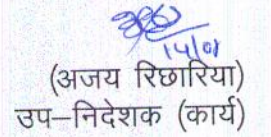 14/01
(अजय रिछारिया)
उप–निदेशक (कार्य)